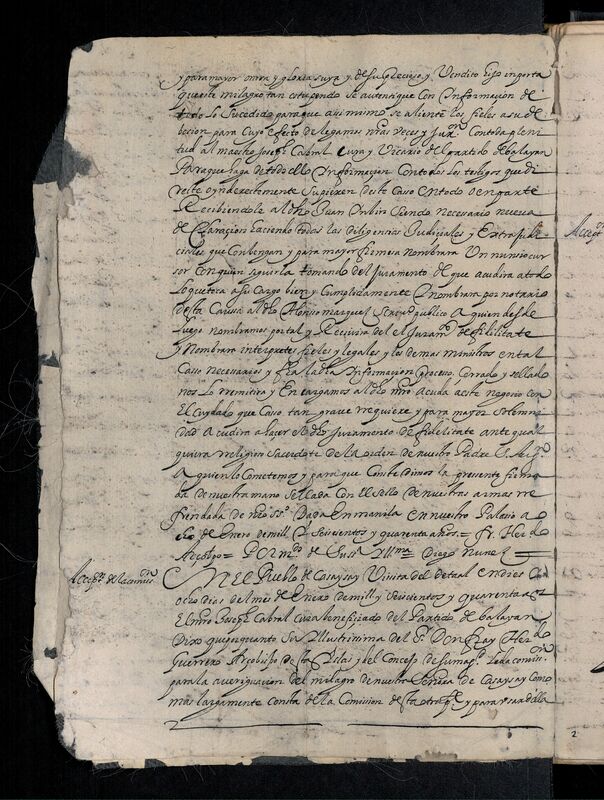 y para mayor onrra y gloria suya y de su precioso y Vendito hijo inporta
que este milagro tan estupendo se autentique con Informacion de
todo lo Sucedido para que assi mismo se aliente los fieles a su de
bocion para Cuyo efecto delegamos nr̃as veces y Jur.on Con toda pleni
tud al maestro Joseph Cabral Cura y Vicario del partido de balayan
Para que haga de todo ello Informacion Con todos los testigos que di
recte o ynderectmente Supieren deste Caso en todo o en parte
Recibiendole al dho Juan siendo necesario nueua
declaracion haciendo todas las diligencias Judiciales y Extrajudi
ciales que Conbengan y para mayor firmesa nombrara Un nunsio cur
sor Con quien siguirla tomando del Juramento de que acudira a todo
lo que toca a su Cargo bien y Cumplidamente Enombrara por notario
desta Caussa al dho Alonso marques Scriu.o publico a quien desde
luego nombramos por tal y Recivira del el Juram.to de fidelitate
y Nombrara interpretes fieles y legales y los demas ministros en tal
Caso necesarios y fha la dha Informacion Cerrado y sellado
nos lo remitira y Encargamos al dho mro acuda a este negocio con
El Cuydado que Caso tan graue rrequiere y para mayor solemni
dad acudira a hacer el dho Juramento de fidelitate ante qual
quiera religioso Sacerdote de la orden de nuestro Padre S. Aug.n
a quien lo Cometemos y para que Conste dimos la presente firma
da de nuestra mano Sellada Con El Sello de nuestras armas rre
frendada de nr̃o SS.o Dada En manila en nuestro Palacio a
de Enero de mill y Seiscientos y quarenta años = fr. Her.do
Arcobpo = Por m.do de Su Sa Illma Diego Nuñez
Accep.on de la comis.on
En El Pueblo de Casaysay Visita del de taal en dies y
ocho dias del mes de Enero de mill y Seiscientos y quarenta años
El mro Joseph Cabral Cura beneficiado del Partido de balayan
Dixo que por quanto Su Illustrisima del S.r Don fray Her.do
Guerrero Arcobispo de estas Yslas y del Consejo de su mag.d le da comis.on
para la averiguacion del milagro de nuestra Señora de Casaysay Como
mas largamente consta de la Comision desta otra y para usar della
Accep.on
2